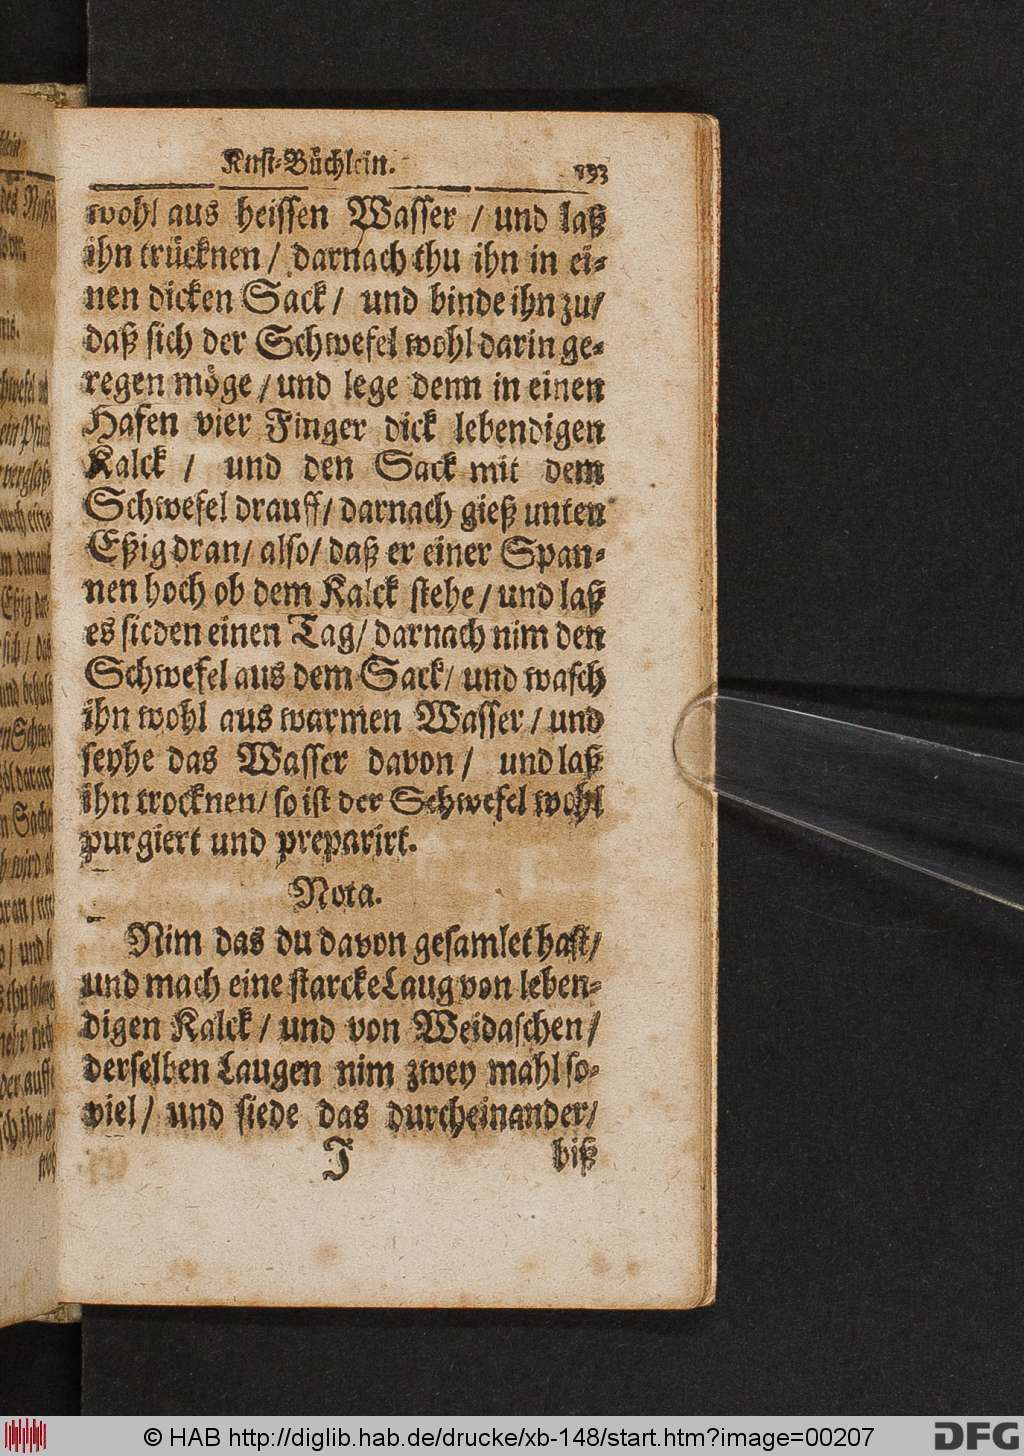 Knst-Büchlein. 193
wohl aus heissen Wasser / und laß
ihn trücknen / darnach thu ihn in ei-
nen dicken Sack / und binde ihn zu/
daß sich der Schwefel wohl darin ge-
regen möge / und lege denn in einen
Hafen vier Finger dick lebendigen
Kalck / und den Sack mit dem
Schwefel drauff / darnach gieß unten
Eßig dran / also / daß er einer Span-
nen hoch ob dem Kalck stehe / und laß
es sieden einen Tag / darnach nim den
Schwefel aus dem Sack / und wasch
ihn wohl aus warmen Wasser / und
seyhe das Wasser davon / und laß
ihn trocknen / so ist der Schwefel wohl
purgiert und preparirt.
Nota.
Nim das du davon gesamlet hast /
und mach eine starcke Laug von leben-
digen Kalck / und von Weidaschen /
derselben Laugen nim zwey mahl so-
viel / und siede das durcheinander /
J biß
© HAB http://diglib.hab.de/drucke/xb-148/start.htm?image=00207
DFG